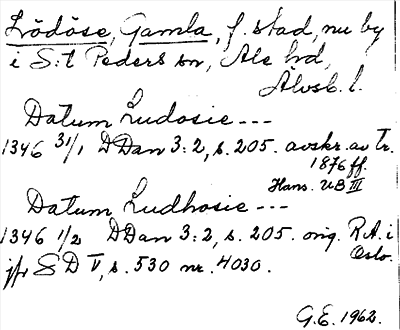 Lödöse, Gamla, f. stad, nu by
i S:t Peders sn, Ale hd,
Älvsb. l.
Datum Ludosie ---
1346 31/1 DDan 3:2, s. 205. avskr. av Tr.
1876 ff.
Hans. UB III
Datum Ludhosie ---
1346 1/2 DDan 3:2, s. 205. orig. RA. i
Oslo.
jfr SD V, s. 530 nr. 4030.
G.E. 1962.